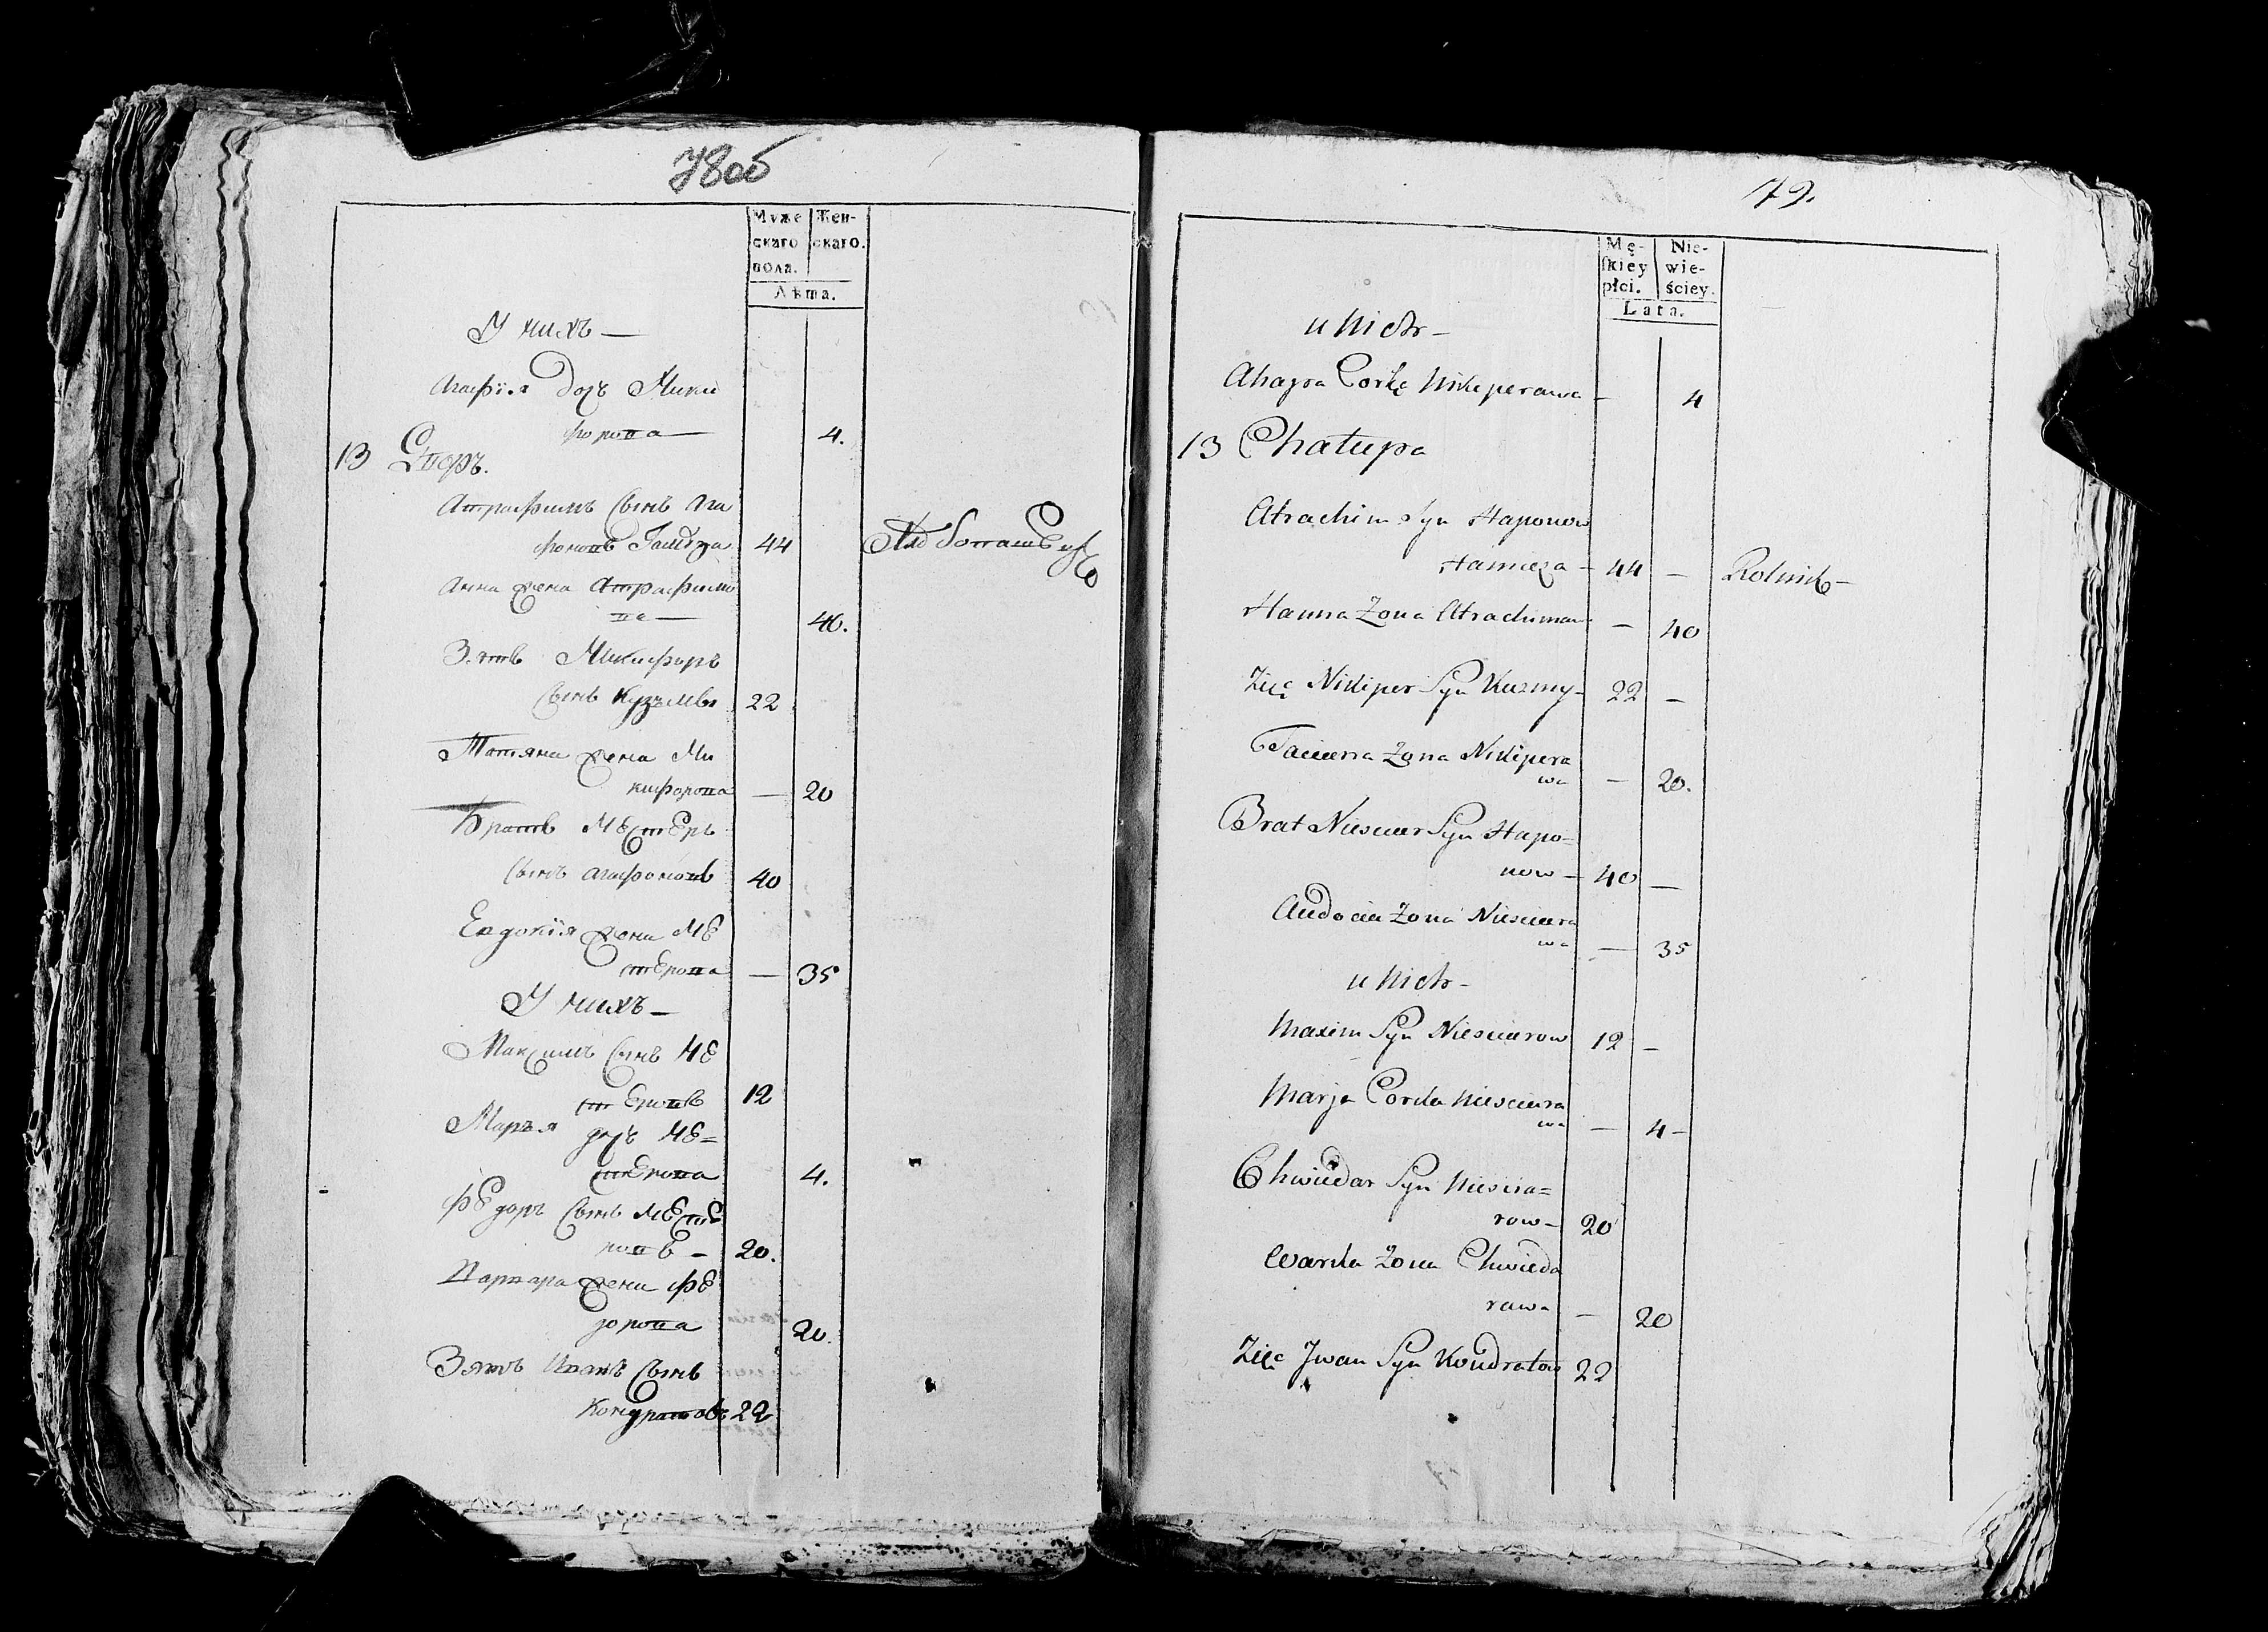 78об
Муже
скаго
пола.
Жен-
скаго.
Лѣта.
У нихъ —
Агафія дочъ Мики
форова — 4.
13 Дворъ.
Атрафимъ сынъ Ага
фоновъ 44
Анна жена Атрафимо
ва — 40.
Зять Микифоръ
сынъ Кузьмы 22
Татяна жена Ми
кифорова — 20
Братъ Нестеръ
сынъ Агафоновъ 40
Евдокія жена Не
стерова — 35
У нихъ —
Максимъ сынъ Не
стеровъ 12
Марья дочъ Не=
стерова 4.
Федоръ сынъ Несте
ровъ — 20.
Варвара жена Фе
дорова 20.
Зять Иванъ сынъ
Кондратовъ 22
79.
Mę-
skiey
płci.
Nie-
wie-
ściey.
Lata.
u Nich —
Ahapa Corka Nikiperawa — 4
13 Chałupa
Atrachim Syn Haponow
44 — Rolnik —
Hanna Zona Atrachimowa — 40
Zięć Nikiper Syn Kuzmy — 22 —
Taciana Zona Nikipera
wa — 20.
Brat Niescier Syn Hapo=
now — 40 —
Audocia Zona Niesciera
wa — 35
u Nich —
Maxim Syn Niescierow 12 —
Marja Corka Niesciera
wa — 4 —
Chwiedar Syn Niescia=
row — 20
Warka Zona Chwieda
rawa — 20
Zięć Jwan Syn Kondratow 22